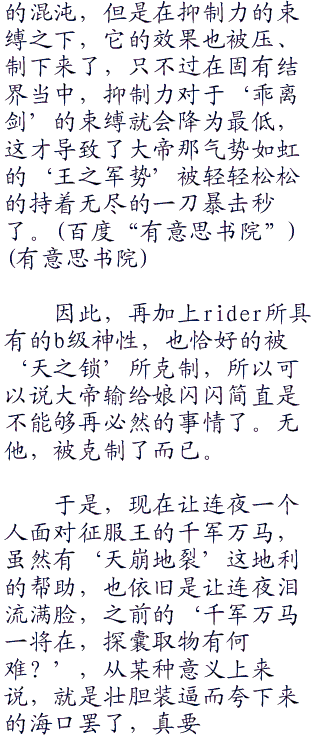 的混沌，但是在抑制力的束
缚之下，它的效果也被压、
制下来了，只不过在固有结
界当中，抑制力对于‘乖离
剑’的束缚就会降为最低，
这才导致了大帝那气势如虹
的‘王之军势’被轻轻松松
的持着无尽的一刀暴击秒
了。(百度“有意思书院”)
(有意思书院)
因此，再加上rider所具
有的b级神性，也恰好的被
‘天之锁’所克制，所以可
以说大帝输给娘闪闪简直是
不能够再必然的事情了。无
他，被克制了而已。
于是，现在让连夜一个
人面对征服王的千军万马，
虽然有‘天崩地裂’这地利
的帮助，也依旧是让连夜泪
流满脸，之前的‘千军万马
一将在，探囊取物有何
难？’，从某种意义上来
说，就是壮胆装逼而夸下来
的海口罢了，真要